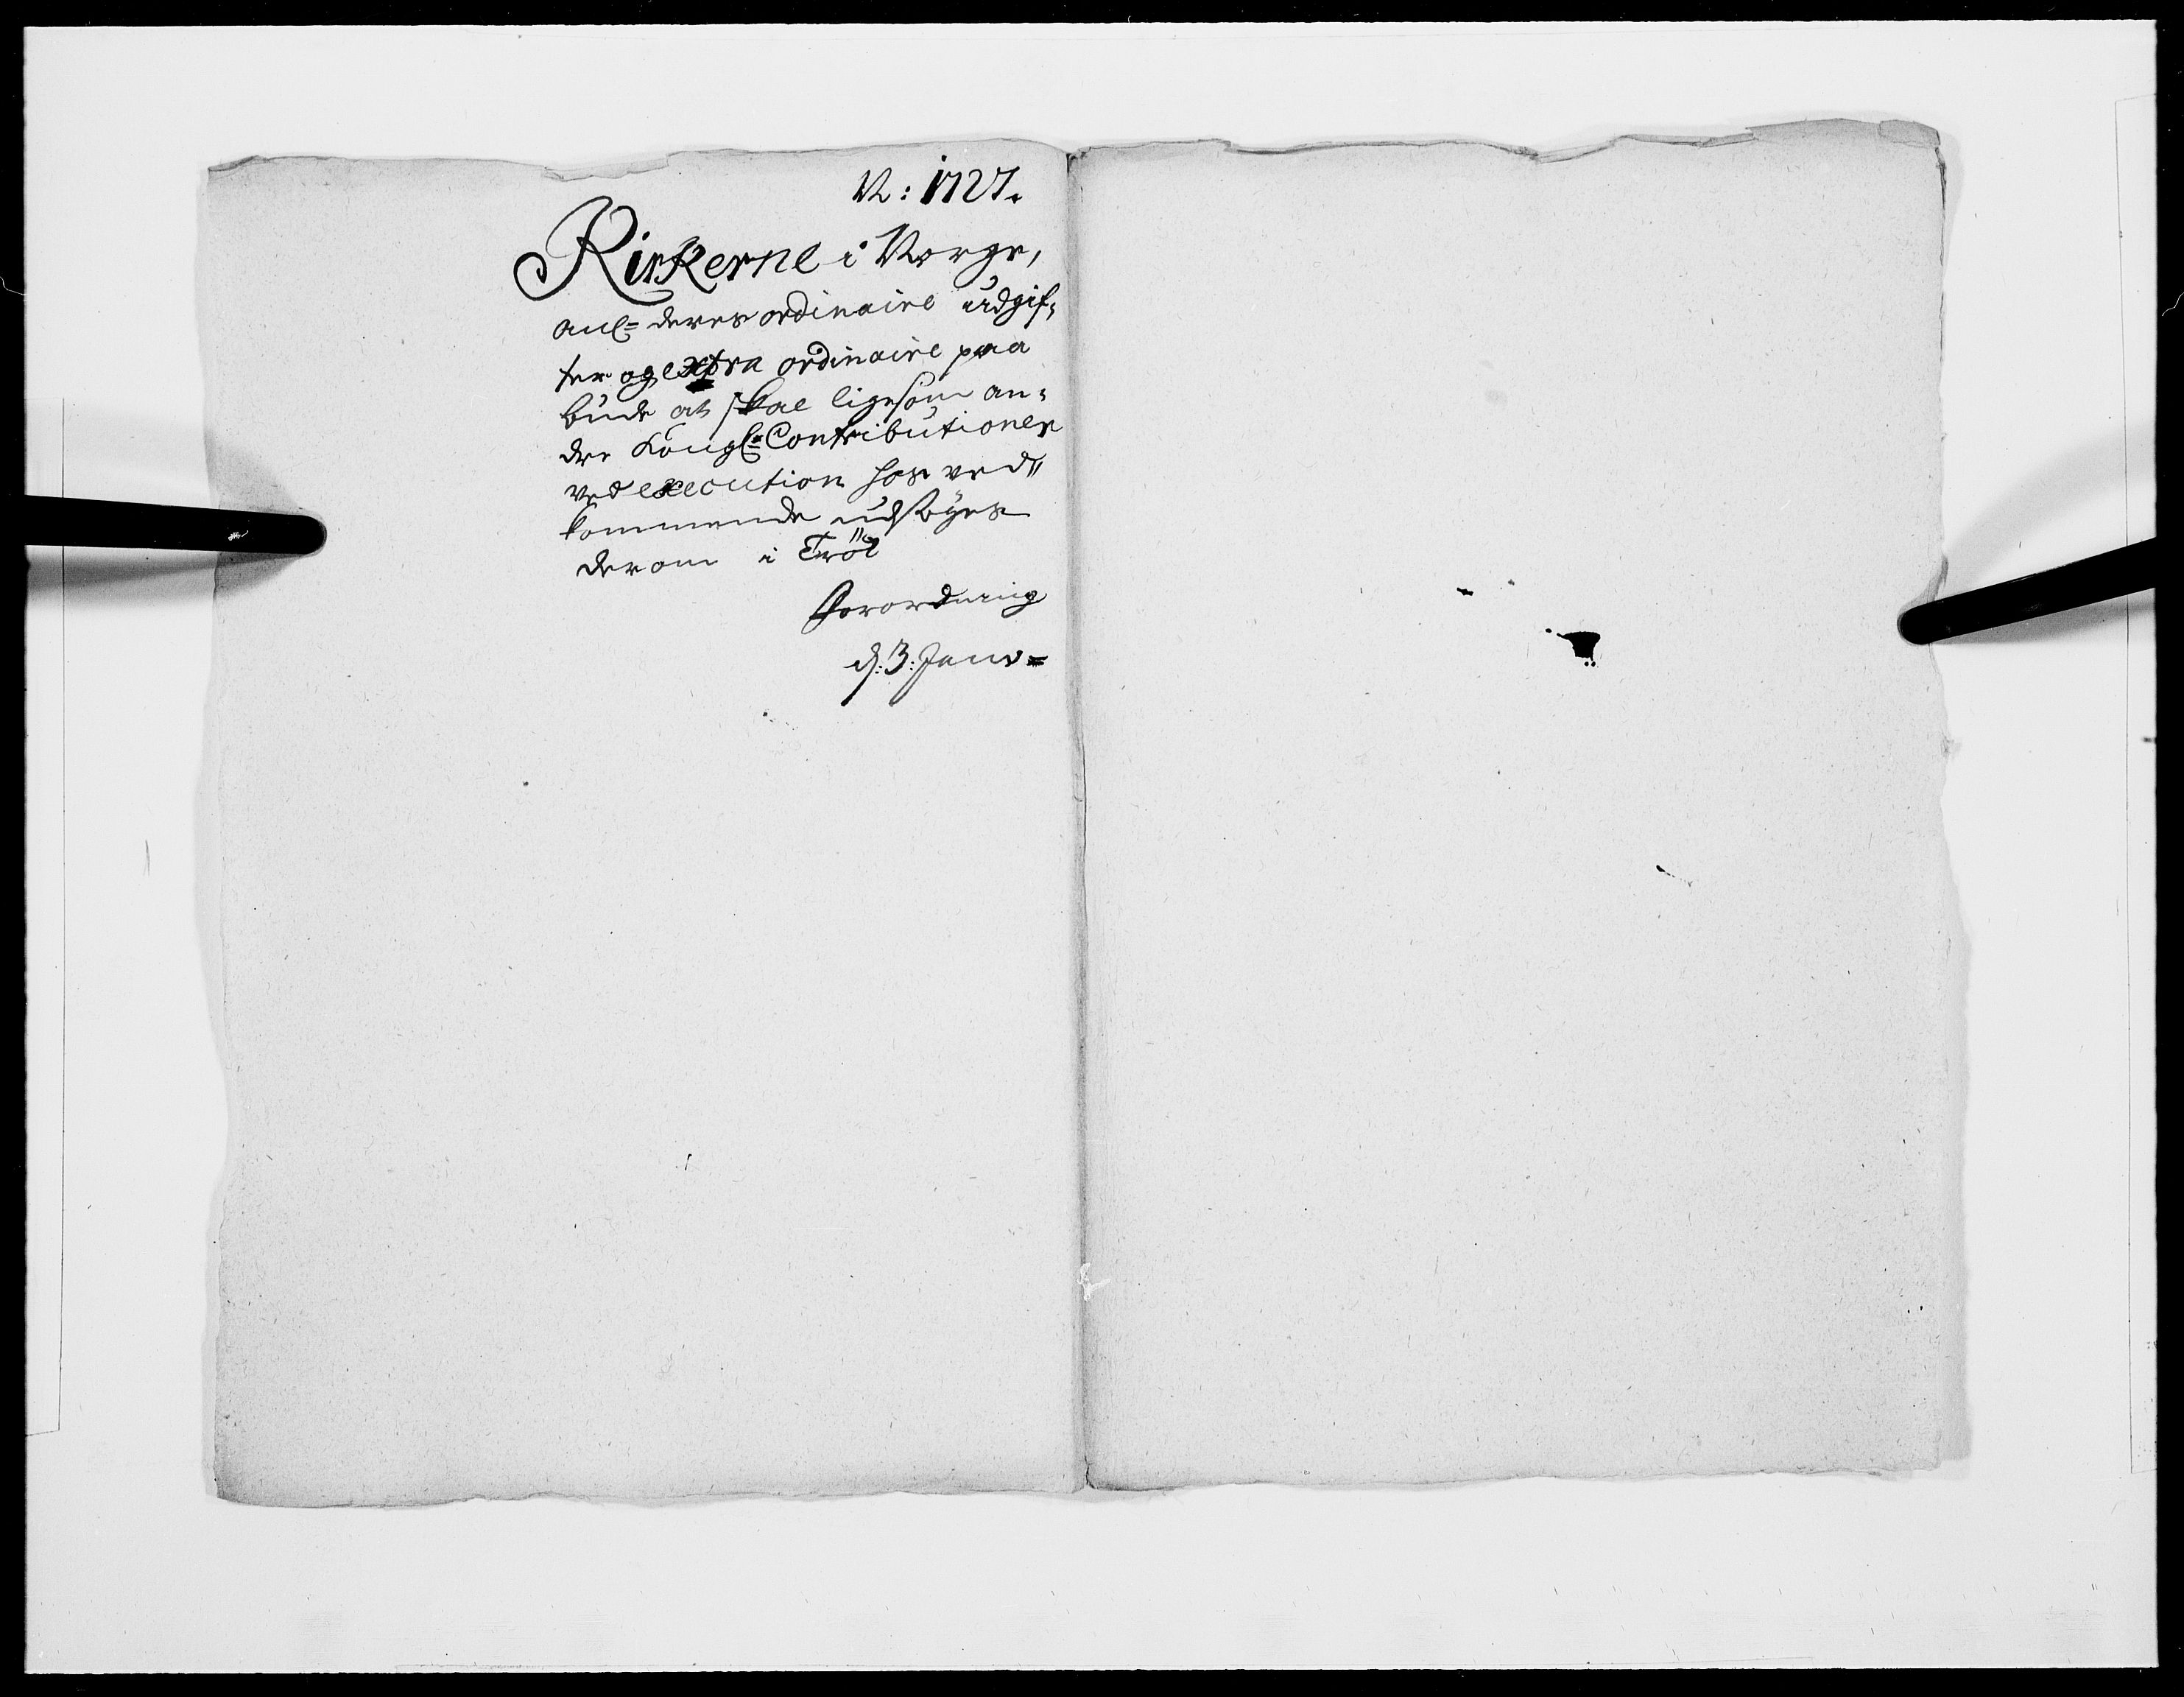 N: 1727.
Kirkerne i Norge,
anl= deres ordinaire udgif,
ter og extra ordinaire paa
bude at skal ligesom an,
dre Kongl: Contributioner
ved execution hos ved,,
kommende udsøges
derom i Tröl
Forordning
d: 3: Janv=